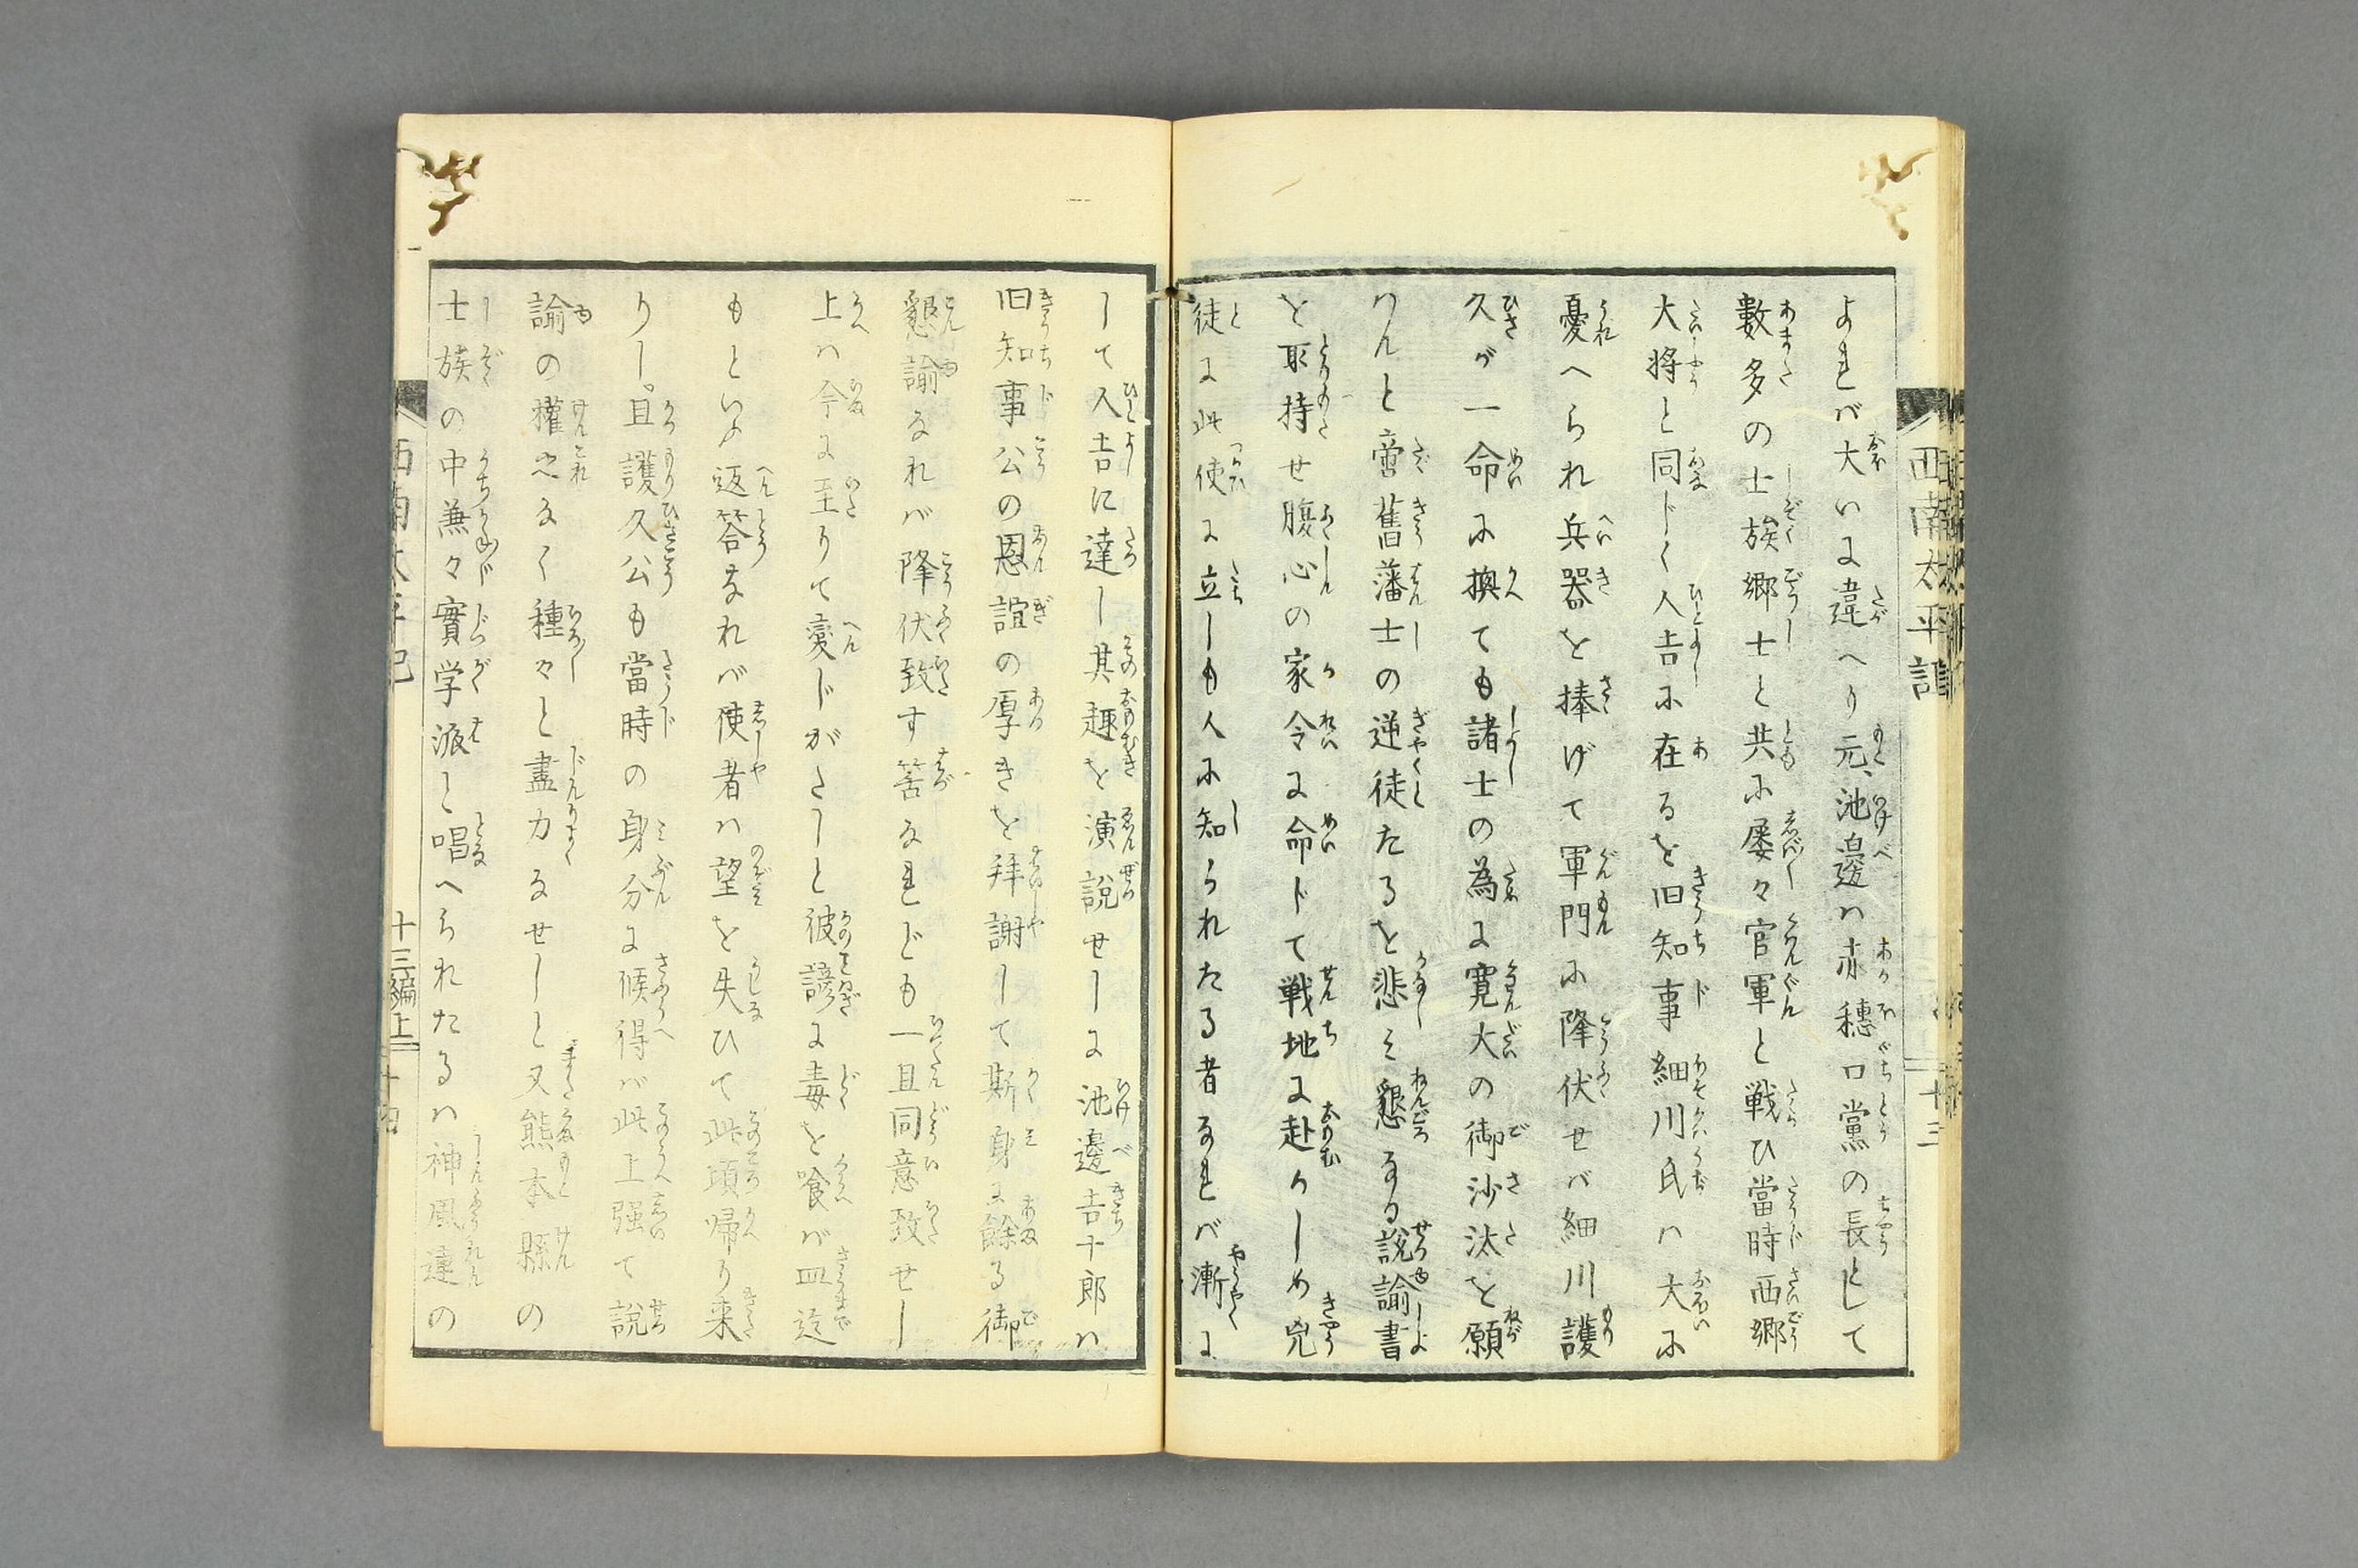 西南太平記
十三
よれバ大いに違へり元、池邊ハ赤穗口黨の長として
數多の士族郷士と共に屡々官軍と戦ひ當時西郷
大将と同じく人吉に在るを旧知事細川氏ハ大に
憂へられ兵器を捧げて軍門に降伏せバ細川護
久が一命に換ても諸士の為に寛大の御沙汰を願
わんと啻舊藩士の逆徒たるを悲ミ懇なる説諭書
を取持せ腹心の家令に命じて戦地に赴かしめ兇
徒に此使に立しも人に知られたる者なれバ漸に
して人吉に達し其趣を演説せしに池邊吉十郎ハ
旧知事公の恩誼の厚きを拝謝して斯身に餘る御
懇諭なれバ降伏致す筈なれども一旦同意致せし
上ハ今に至りて変じがたしと彼諺に毒を喰バ皿迄
もといふ返答なれバ使者ハ望を失ひて此頃帰り来
りし。且護久公も當時の身分に候得バ此上强て説
諭の權之なく種々と盡力なせしと又熊本縣の
士族の中兼々實学派と唱へられたるハ神風連の
西南太平記
十三編上
十四